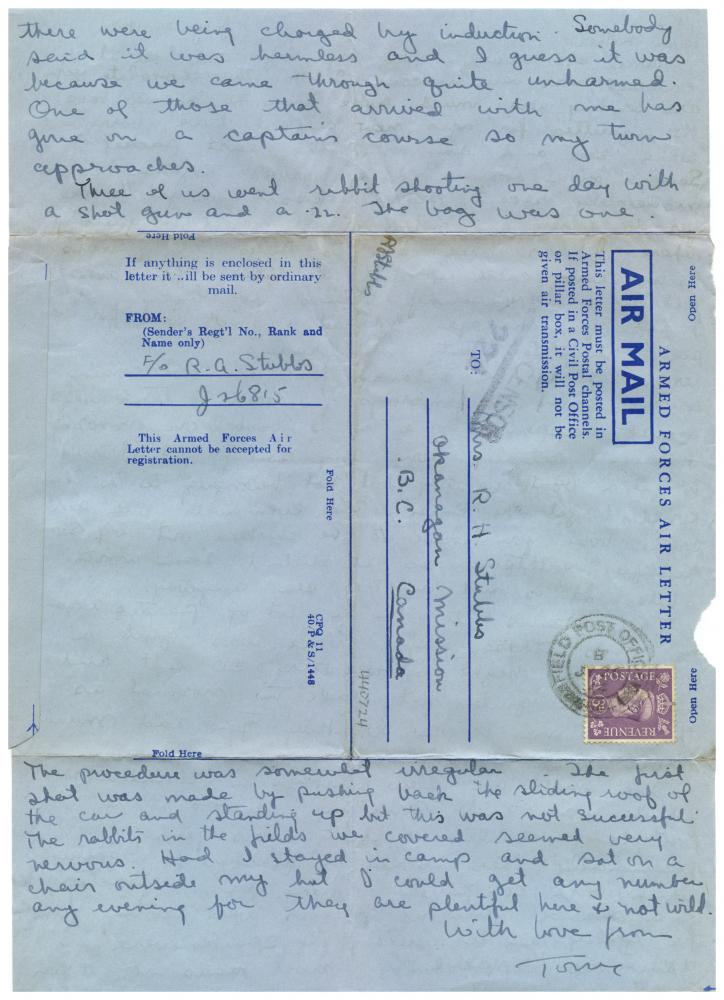 there were being charged by induction. Somebody
said it was harmless and I guess it was
because we came through quite unharmed.
One of those that arrived with me has
gone on a captain's course so my turn
approaches.
Three of us went rabbit shooting one day with
a shot gun and a .22. The bag was one.
Fold Here
If anything is enclosed in this
letter it ..ill be sent by ordinary
mail.
FROM:
(Sender's Regt'l No., Rank and
Name only)
F/O R.A. Stubbs
J26815
This Armed Forces Air
Letter cannot be accepted for
registration.
Fold Here
CPQ 11
40/P & S/1448
RAStubbs
Open Here
ARMED FORCES AIR LETTER
Open Here
AIR MAIL
This letter must be posted in
Armed Forces Postal channels.
If posted in a Civil Post Office
or pillar box, it will not be
given air transmission.
CENSOR
TO:
Mrs. R. H. Stubbs
Okanagan Mission
B.C. Canada
440724
FIELD POST OFFICE
POSTAGE
REVENUE
Fold Here
The procedure was somewhat irregular. The first
shot was made by pushing back the sliding roof of
the car and standing up but this was not successful.
The rabbits in the fields we covered seemed very
nervous. Had I stayed in camp and sat on a
chair outside my hut I could get any number
any evening for they are plentiful here & not wild.
With love from
Tony